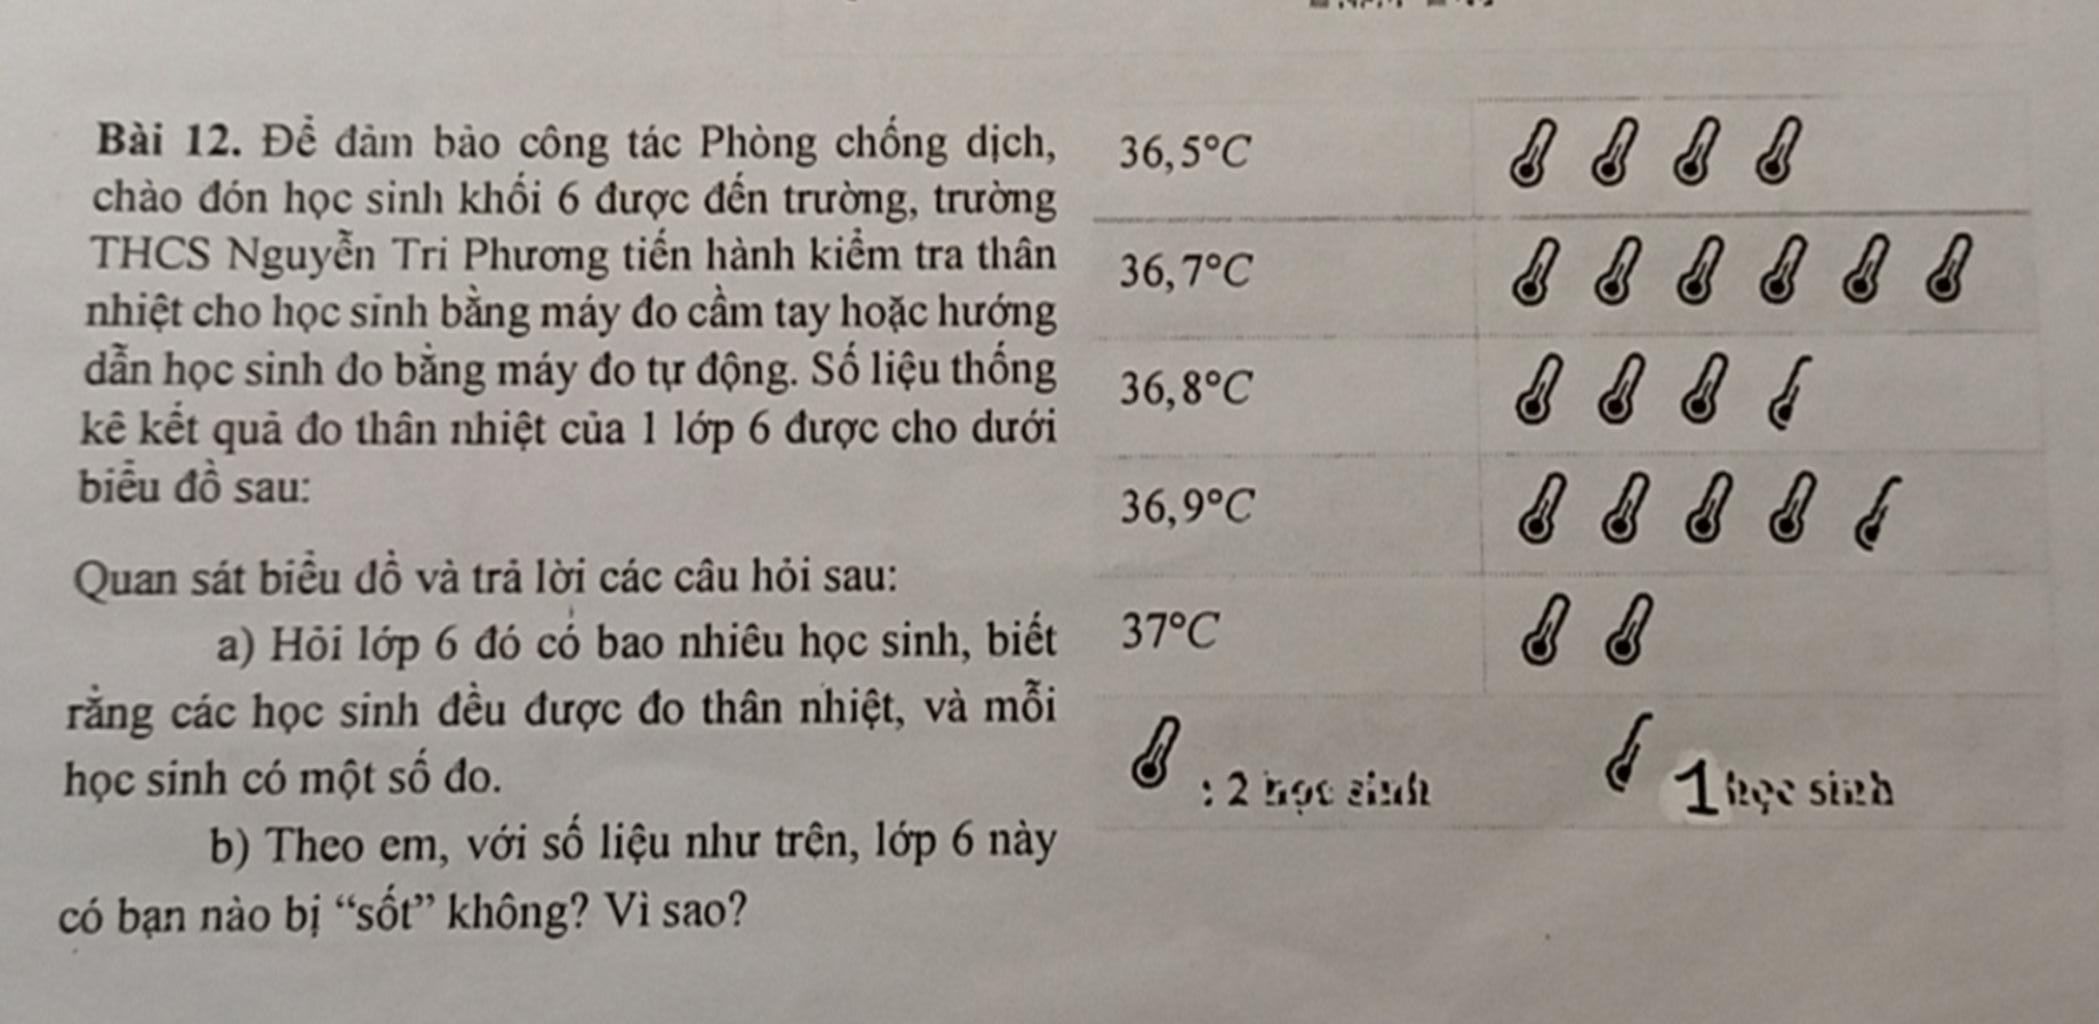 Bài 12. Để đảm bảo công tác Phòng chống dịch,
chào đón học sinh khối 6 được đến trường, trường
THCS Nguyễn Tri Phương tiến hành kiểm tra thân
nhiệt cho học sinh bằng máy đo cầm tay hoặc hướng
dẫn học sinh đo bằng máy đo tự động. Số liệu thống
kê kết quả đo thân nhiệt của 1 lớp 6 được cho dưới
biểu đồ sau:
Quan sát biểu đồ và trả lời các câu hỏi sau:
a) Hỏi lớp 6 đó có bao nhiêu học sinh, biết
rằng các học sinh đều được đo thân nhiệt, và mỗi
học sinh có một số đo.
b) Theo em, với số liệu như trên, lớp 6 này
có bạn nào bị “sốt” không? Vì sao?
36,5°C
36,7°C
36,8°C
36,9°C
37°C
: 2 học sinh
1 học sinh